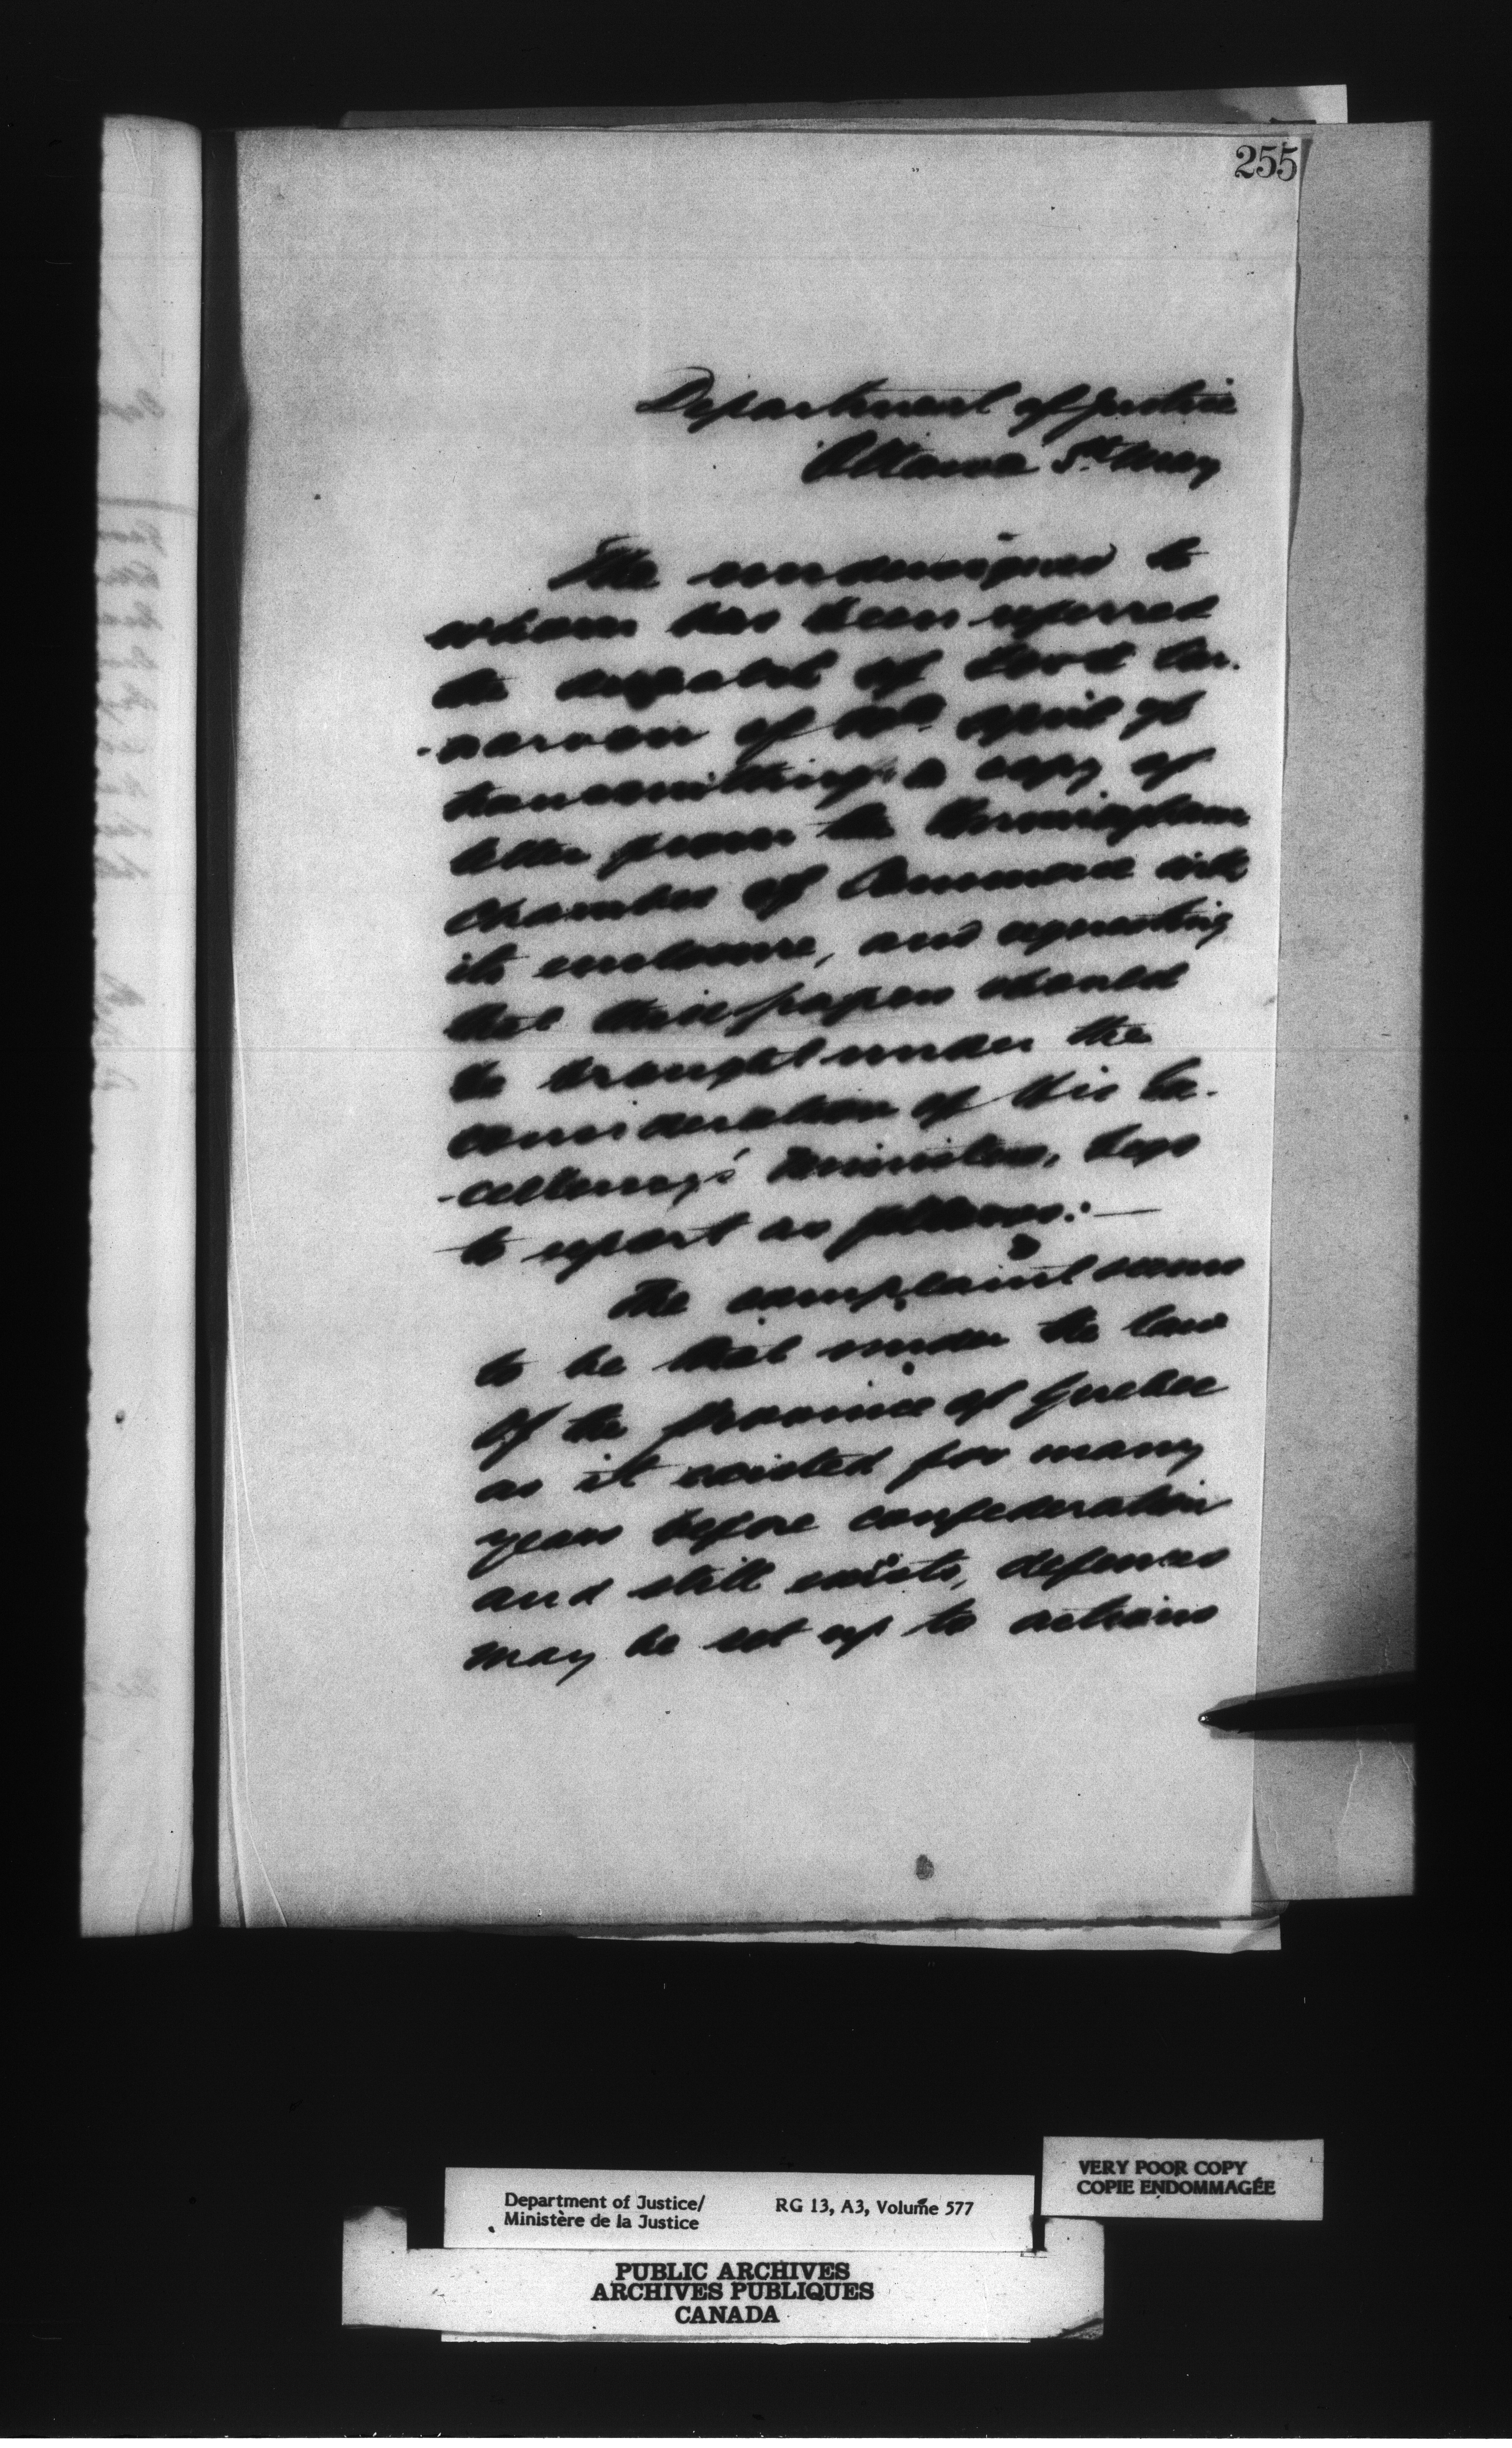 255
Department of Justice
Ottawa 5th May
The undersigned to
whom has been referred
the despatch of Lord Car-
-narvon of April
transmitting a copy of
letter from the Birmingham
Chamber of Commerce with
its enclosure, and requesting
that these papers should
be brought under the
consideration of His Ex-
-cellency's Ministers, begs
to report as follows:—
The complaint seems
to be that under the law
Of the Province of Quebec
as it existed for many
years before confederation
and still exists, defences
may be set up to actions
VERY POOR COPY
COPIE ENDOMMAGÉE
Department of Justice/ RG 13, A3, Volume 577
Ministère de la Justice
PUBLIC ARCHIVES
ARCHIVES PUBLIQUES
CANADA